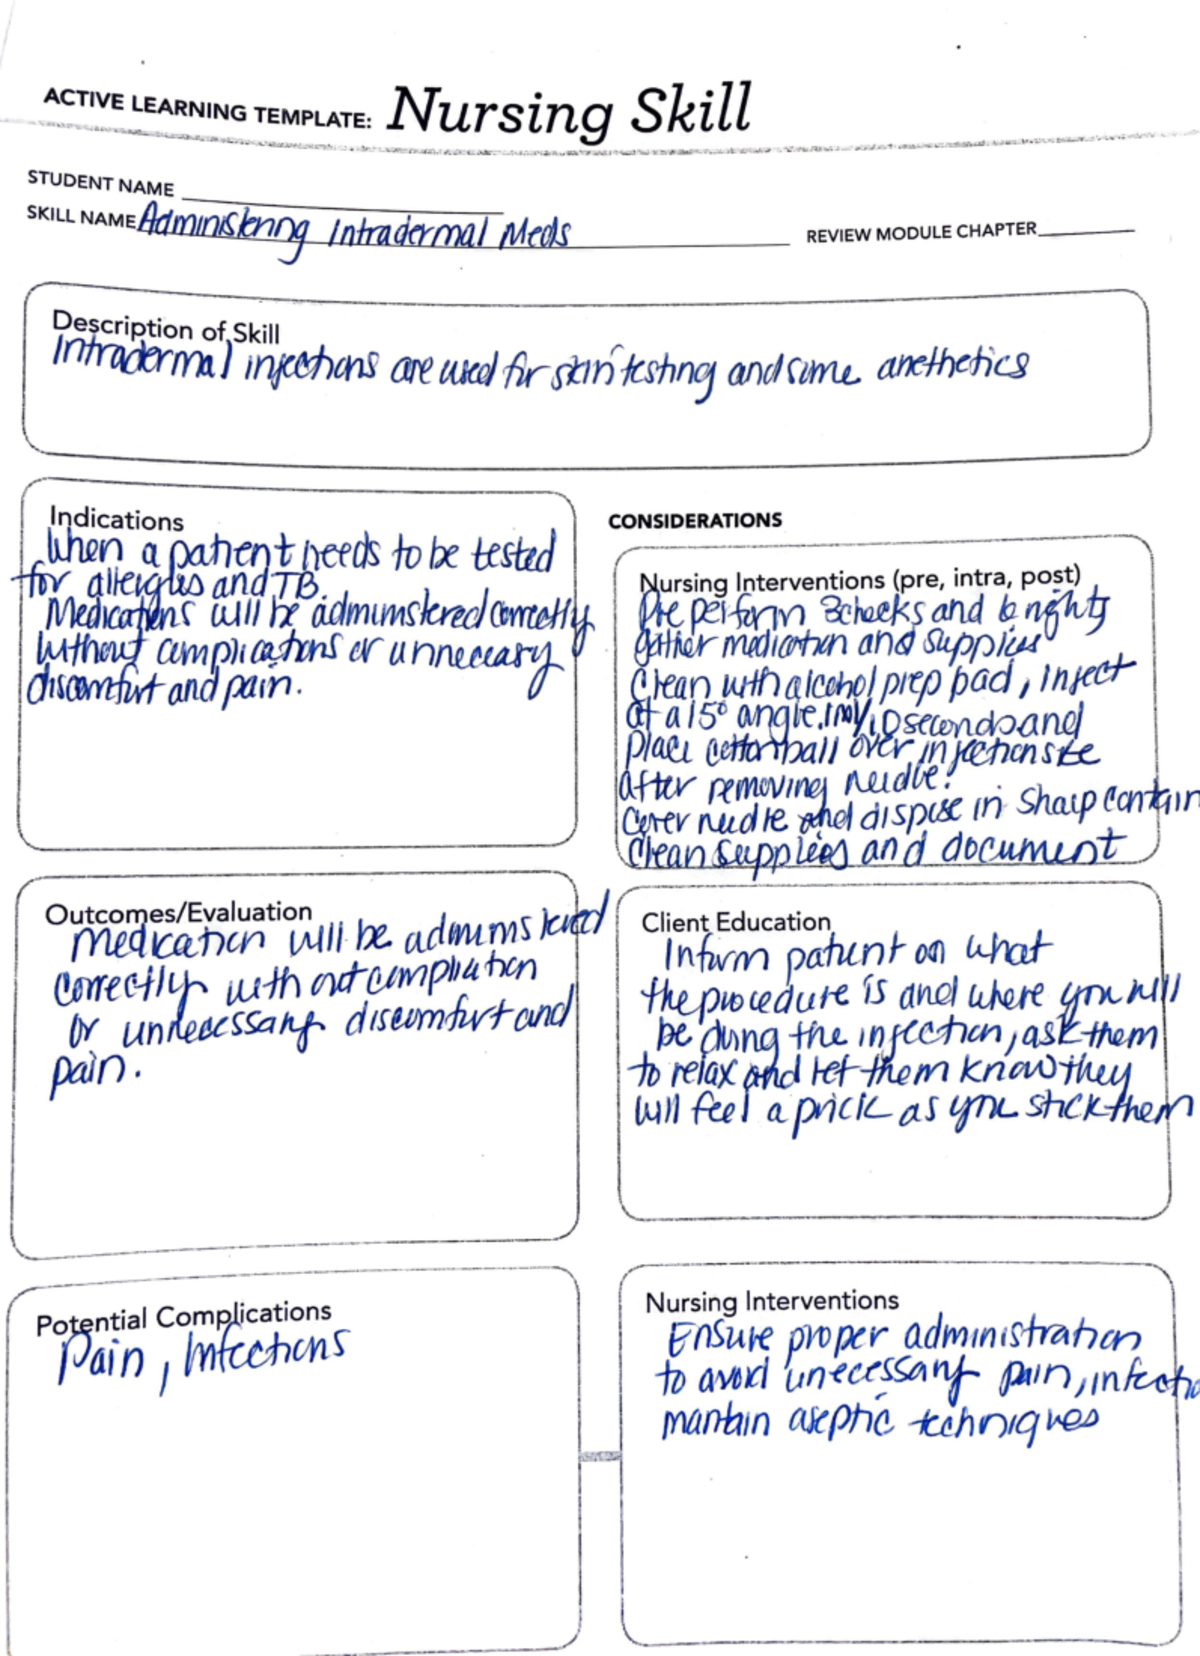 ACTIVE LEARNING TEMPLATE: Nursing Skill
STUDENT NAME
SKILL NAME Administering Intradermal Meds
REVIEW MODULE CHAPTER
Description of Skill
Intradermal injections are used for skin testing and some anethetics
Indications
When a patient needs to be tested
for allergies and TB.
Medications will be administered correctly
without complications or unnecessary
discomfort and pain.
CONSIDERATIONS
Nursing Interventions (pre, intra, post)
Pre perform 3 checks and 6 rights
gather medication and supplies
Clean with alcohol prep pad, inject
at a 15° angle. 1ml/10 seconds and
place cotton ball over injection site
after removing needle.
Cover needle and dispose in Sharp contain
Clean supplies and document
Outcomes/Evaluation
Medication will be administered
correctly without complication
or unnecessary discomfort and
pain.
Client Education
Inform patient on what
the procedure is and where you will
be doing the injection, ask them
to relax and let them know they
will feel a prick as you stick them
Potential Complications
Pain, Infections
Nursing Interventions
Ensure proper administration
to avoid unecessary pain, infectio
mantain aseptic techniques